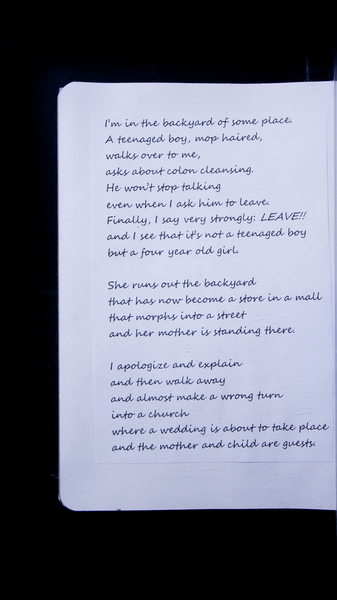 I'm in the backyard of some place.
A teenaged boy, mop haired,
walks over to me,
asks about colon cleansing.
He won't stop talking
even when I ask him to leave.
Finally, I say very strongly: LEAVE!!
and I see that it's not a teenaged boy
but a four year old girl.
She runs out the backyard
that has now become a store in a mall
that morphs into a street
and her mother is standing there.
I apologize and explain
and then walk away
and almost make a wrong turn
into a church
where a wedding is about to take place
and the mother and child are guests.